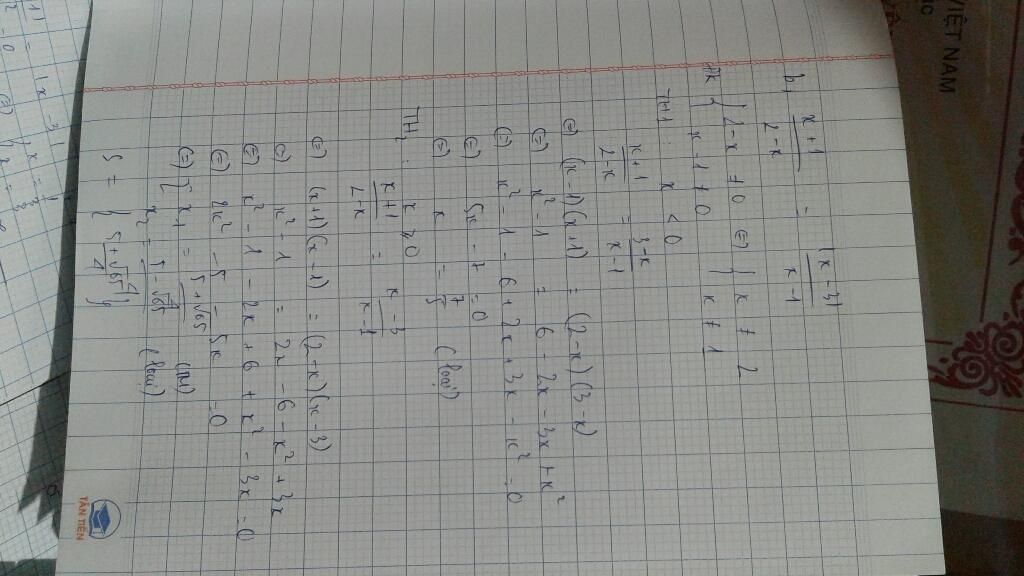 b, x + 1 / 2 - x = |x - 3| / x - 1
ĐK { 2 - x ≠ 0 (=) { x ≠ 2
x - 1 ≠ 0 x ≠ 1
TH1 : x < 0
x + 1 / 2 - x = 3 - x / x - 1
(=) (x - 1)(x + 1) = (2 - x)(3 - x)
(=) x² - 1 = 6 - 2x - 3x + x²
(=) x² - 1 - 6 + 2x + 3x - x² = 0
(=) 5x - 7 = 0
(=) x = 7/5 (loại)
TH2 : x ≥ 0
x + 1 / 2 - x = x - 3 / x - 1
(=) (x + 1)(x - 1) = (2 - x)(x - 3)
(=) x² - 1 = 2x - 6 - x² + 3x
(=) x² - 1 - 2x + 6 + x² - 3x = 0
(=) 2x² - 5 = 5x = 0
(=) [ x1 = 5 + √65 / 4 (TM)
x2 = 5 - √65 / 4 (loại)
S = { 5 + √65 / 4 }
TÂN TIẾN
VIỆT NAM